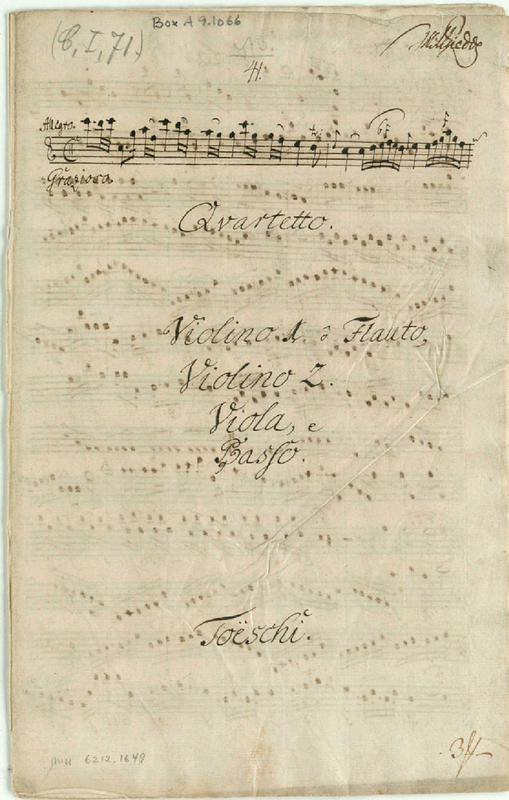 Box A 9.1066
(C, I, 71.)
41.
Allegro.
Grazioso.
Qvartetto.
Violino 1. ò Flauto.
Violino 2.
Viola, e
Basso.
Toëschi.
mu 6212.1648